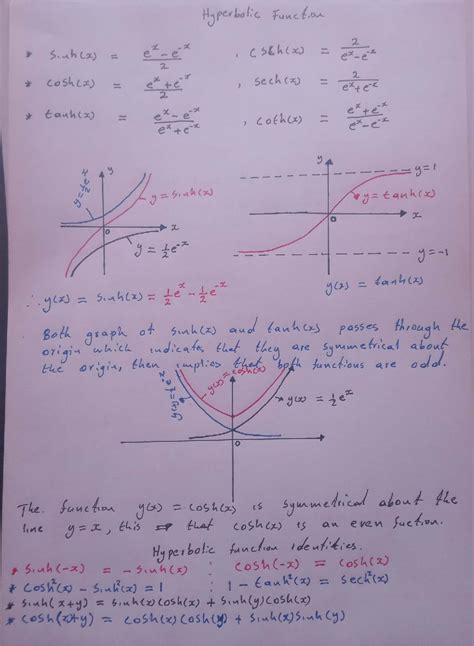 Hyperbolic Function
* sinh(x) = (e^x - e^-x)/2 , csch(x) = 2/(e^x - e^-x)
* cosh(x) = (e^x + e^-x)/2 , sech(x) = 2/(e^x + e^-x)
* tanh(x) = (e^x - e^-x)/(e^x + e^-x) , coth(x) = (e^x + e^-x)/(e^x - e^-x)
y
y = 1/2 e^x
y = sinh(x)
x
0
y = 1/2 e^-x
y
y = 1
y = tanh(x)
0
x
y = -1
∴ y(x) = sinh(x) = 1/2 e^x - 1/2 e^-x
y(x) = tanh(x)
Both graph of sinh(x) and tanh(x) passes through the
origin which indicates that they are symmetrical about
the origin, then implies that both functions are odd.
y(x) = 1/2 e^-x
y(x) = cosh(x)
y(x) = 1/2 e^x
0
The function y(x) = cosh(x) is symmetrical about the
line y = x, this ⇒ that cosh(x) is an even fuction.
Hyperbolic function identities.
* sinh(-x) = -sinh(x) : cosh(-x) = cosh(x)
* cosh²(x) - sinh²(x) = 1 : 1 - tanh²(x) = sech²(x)
* sinh(x+y) = sinh(x)cosh(x) + sinh(y)cosh(x)
* cosh(x+y) = cosh(x)cosh(y) + sinh(x)sinh(y)